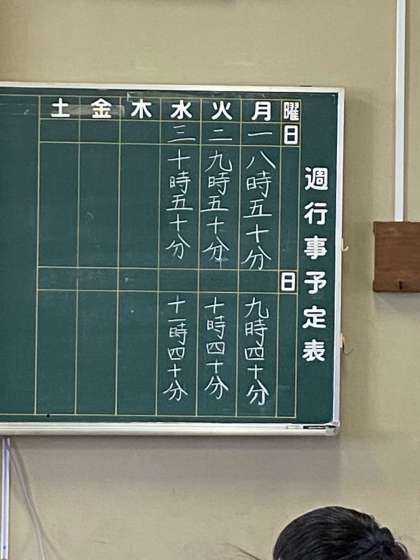 週行事予定表
曜 月 火 水 木 金 土
日 一 二 三
八時五十分
九時五十分
十時五十分
日
九時四十分
十時四十分
十一時四十分